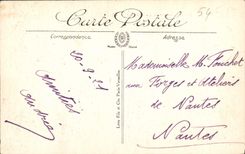 54
Carte Postale
Correspondance
Adresse
20-9-21
Amitiés
Andrée
Mademoiselle M. Fouchet
aux Forges et Ateliers
de Nantes
Nantes